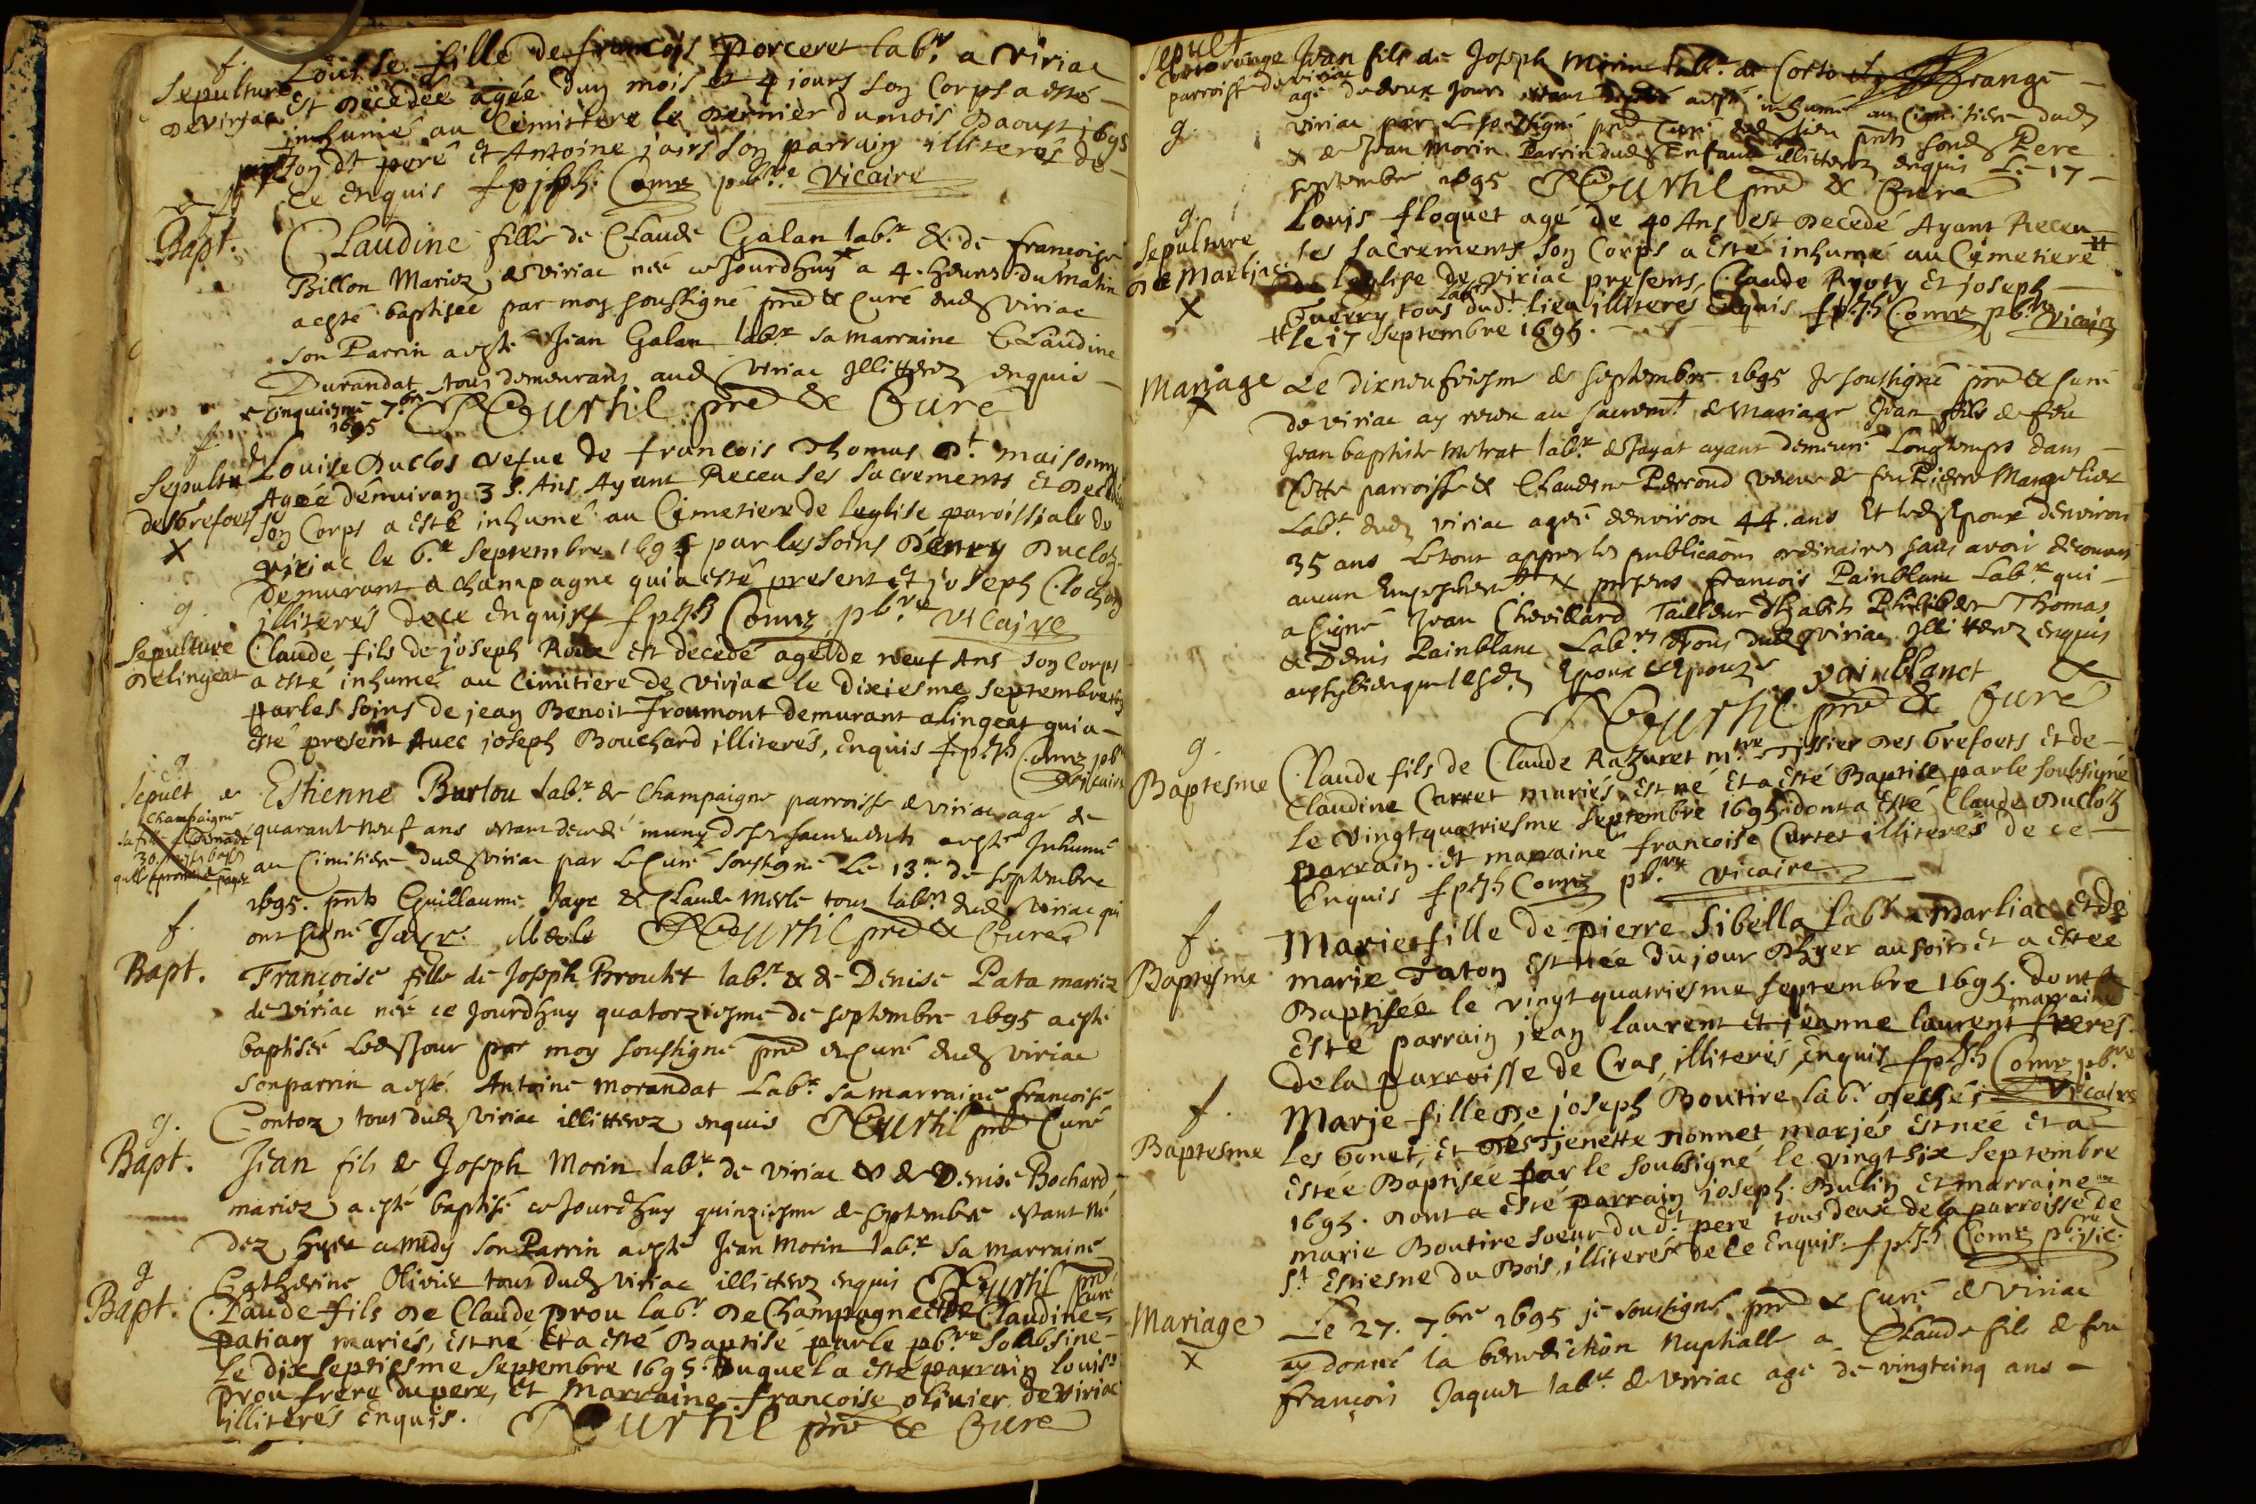 f.
Sepulture
de viriac
Louise fille de francois Porceret labr. a viriac
Est decedée agée duy mois et 4 jours soy Corps a esté
inhumé au Cimittere le dernier du mois daoust 1695
soy dt. peré Et Antoine jairs soy parrain illiterés de
ce enquis f p jph. Comz pbre. Vicaire
Bapt.
CLaudine fille de CLaude Galan labr. & de francoise
Billon Mariez de viriac née ce Jourdhuy a 4. heures du Matin
a esté baptisée par moy soussigné pre & Curé dud viriac
son Parrin a esté Jean Galan labr. sa marraine CLaudine
Durandat tous demeurans aud Viriac Illitterez enquis
cinquiesme 7bre
1695
Courtil pre & Curé
f.
Sepultur
des Grefoets
X
Louise Duclos vefue de francois Thomas dt. maisonny
Agée dénuiron 35. Ans Ayant Receu ses Sacrements Et Decedée
soy Corps a Esté inhumé au Cimetiere de leglise paroissiale de
viriac le 6.e Septembre 1695 par les soins Denry Ducloz
demurant a champagne qui a esté present Et joseph Clochon
illiterés de ce Enquis f p jph Comz pbre Vicaire
g.
Sepulture
de lingeat
Claude fils de joseph Roux Est decedé agé de neuf Ans soy Corps
a esté inhumé au Cimitiere de Viriac le dixiesme Septembre
par les soins de jean Benoit froumont demurant a lingeat qui a
Esté present Auec joseph Bouchard illiterés, Enquis f p jph Comz pbr
vicaire
g.
Sepult de
Champaigne
Estienne Burtou labr. de Champaigne parroisse de viriac agé de
quarante neuf ans estant decedé muny de ses sacrements a esté Inhumé
au Cimitiere dud viriac par le Curé soussigné Le 13.e de septembre
1695. pnts Guillaume Jayr & CLaude Merle tous labrs dud viriac qui
ont signé Jayr. Merle Courtil pre & Curé
f.
Bapt.
Françoise fille de Joseph Broulet labr. & de Denise Pata mariez
de viriac née ce Jourdhuy quatorziesme de septembre 1695 a esté
baptisée led Jour par moy soussigné pre & Curé dud viriac
son parrin a esté Antoine Morandat Labr. sa marraine francoise
Contoz tous dud viriac illitterez enquis Courtil pre Curé
g.
Bapt.
Jean fils de Joseph Morin labr. de viriac & de Denise Bochard
mariez a esté baptisé ce Jourdhuy quinziesme de septembre estant né
dez hyer a midy son Parrin a esté Jean Morin labr. sa marraine
Catherine Olivier tous dud viriac illitterez enquis Courtil pre
Curé
g
Bapt.
CLaude fils de Claude prou labr. de Champagne et de Claudine
patian mariés, Est né Et a esté Baptisé par le pbre Soubsiné
le dix septiesme septembre 1695. Duquel a esté parrain louis
prou frere du pere, et Marraine françoise olivier de viriac
illiterés Enquis. Courtil pre & Curé
Sepult
parroisse de viriac
g.
Jean fils de Joseph Morin labr. de
agé de deux Jours estant decedé a esté inhumé au Cimitiere dud
viriac par le soussigné pre Curé dud lieu pnts sond Pere
& de Jean Morin Parrin dud Enfant illitterez enquis Le 17
septembre 1695 Courtil pre & Curé
g.
Sepulture
de Marliac
X
Louis floquet agé de 40 Ans Est Decedé Ayant Receu
ses sacrements soy Corps a Esté inhumé au Cimetiere #
de leglise de viriac presents, Claude Ryoty Et joseph
Guerry tous labrs dudt. lieu illiteres Enquis f p jph Comz pbre
Vicaire
# le 17 Septembre 1695.
Mariage
X
Le dixneufviesme de septembre 1695 Je soussigné pre & Curé
de viriac ay receu au sacremt. de Mariage Jean fils de feu
Jean baptiste Metrat labr. de Jayat ayant demeuré Longtemps dans
cette parroisse & CLaudine Perroud veuve de feu Pierre Mangelier
Labr. dud viriac agée denviron 44. ans Et led Epoux denviron
35 ans Le tout appres les publicaōns ordinaires sans avoir découvert
aucun Empeschemt. & presens francois Painblanc Labr. qui
a signé Jean Chevillard Tailleur d'habits Philibert Thomas
& Denis Painblanc Labrs Tous dud viriac Illitterez enquis
aussybien que lesd Epoux & Epouze painblanct &
Courtil pre & Curé
g.
Baptesme
Claude fils de Claude Razuret mtre Tissier des Grefoets Et de
Claudine Carret mariés, Est né Et a Esté Baptisé par le soubsigné
le vingt quatriesme Septembre 1695 dont a Esté Claude Ducloz
parrain. Et maraine francoise Carret illiterés de ce
Enquis f p jph Comz pbre Vicaire
f.
Baptesme
Marie fille de pierre Sibella labr a Marliac et de
marie Tatoy Est née du jour dhyer au soir et a Estée
Baptisée le vingt quatriesme septembre 1695. dont a
Esté parrain jean laurent et jeanne laurent marraine freres
de la parroisse de Cras, illiterés, Enquis f p jph Comz pbre
Vicaire
f.
Baptesme
Marie fille de joseph Boutire labr. de chés
les Gonet, Et de Tienette Nonnet mariés Est née Et a
Estée Baptisée par le soubsigné le vingt six Septembre
1695. dont a Esté parrain joseph Bulin Et marraine
marie Boutire soeur du dt pere tous deux de la parroisse de
St Estiesne du Bois, illiterés de ce Enquis. f p jph Comz pbre vic.
Mariage
X
Le 27. 7bre 1695 je soussigné pre & Curé de viriac
ay donné la benediction Nuptialle a CLaude fils de feu
françois Jaquet labr de viriac agé de vingtcinq ans